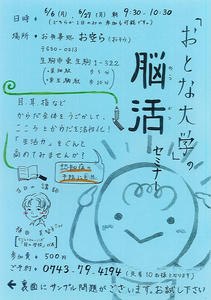 「おとな大学」の
脳活
のう
かつ
セミナー
日時 5/6(月), 5/27(月) 朝 9:30-10:30
(どちらか1日のみの参加も可能です。)
場所 お弁当処 おぞら
〒630-0213
生駒市東生駒1-322
目、耳、指など
からだ全体をうごかして、
こころとからだを活性化!
「生活力」をぐんと
高めてみませんか!
認知症の
予防に!
3日の講師
参加費 500円
ご予約 0743.79.4194
← 裏面にサンプル問題がございます。お試し下さい